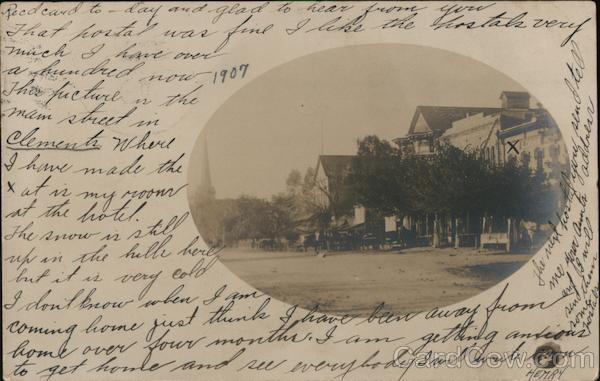 Recd card to-day and glad to hear from you
That postal was fine I like the postals very
much I have over
a hundred now
This picture is the
main street in
Clements Where
I have made the
x at is my room
at the hotel.
The snow is still
up in the hills here
but it is very cold
I don't know when I am
coming home just think I have been away from
home over four months. I am getting anxious
to get home and see everybody
1907
x
The next postal you send tell
me your aunts address
send them
postals
HENRY
CardCow.com